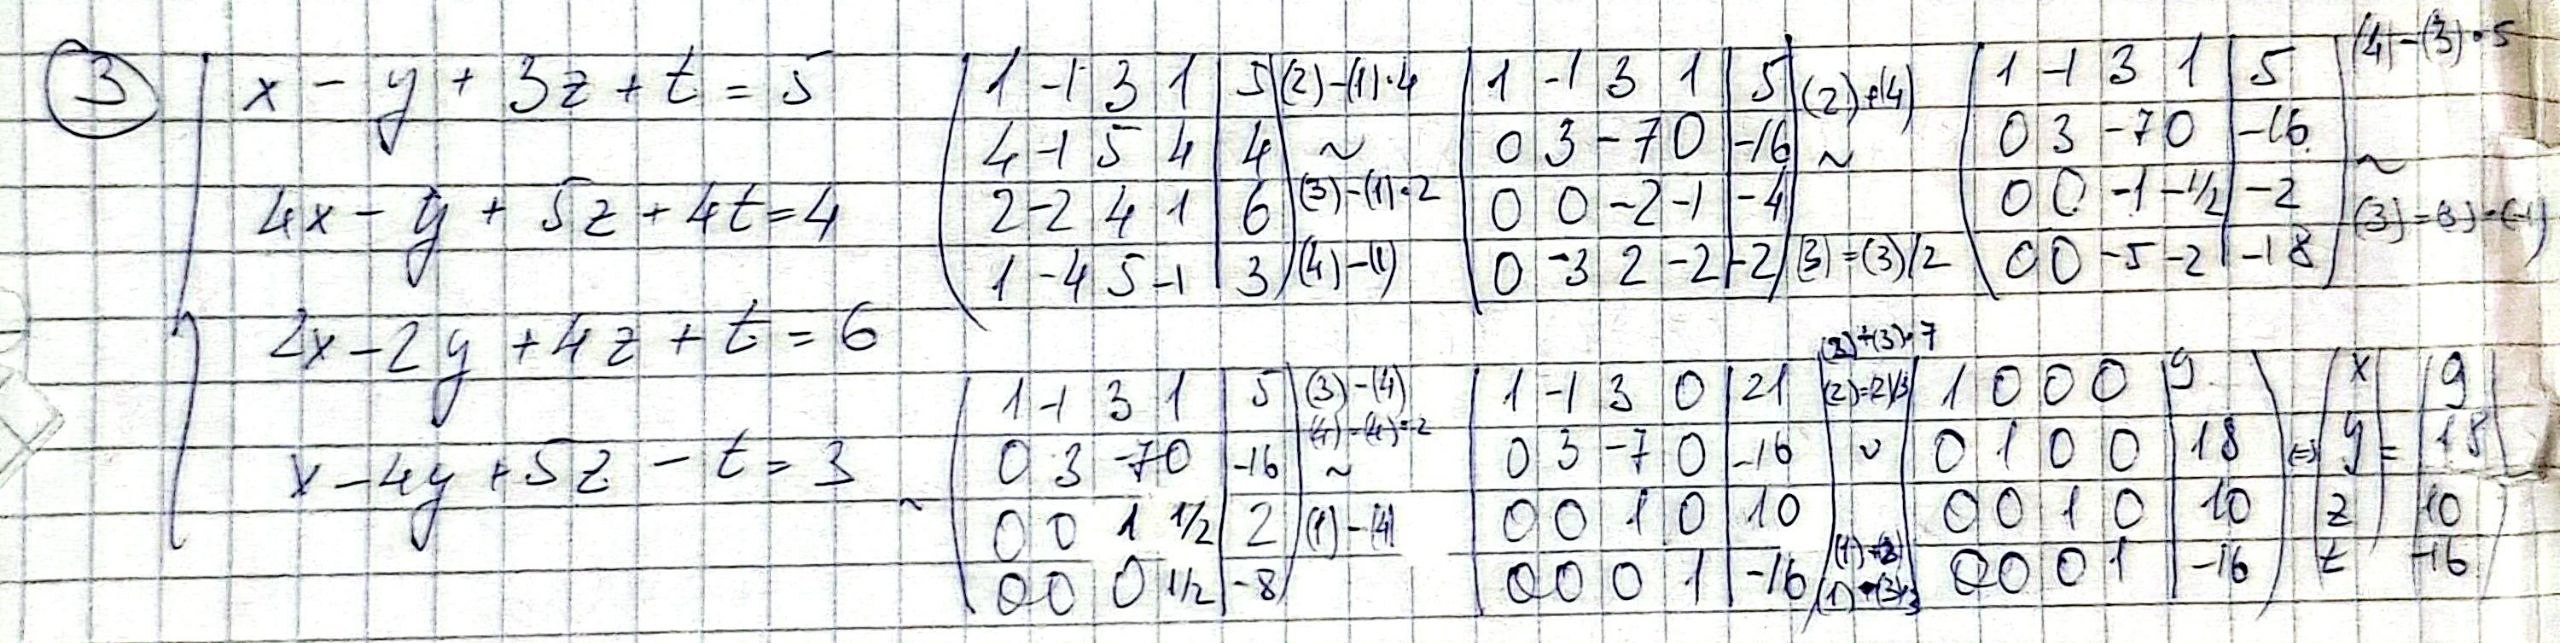 3
x - y + 3z + t = 5
4x - y + 5z + 4t = 4
2x - 2y + 4z + t = 6
x - 4y + 5z - t = 3
1 -1 3 1 | 5
4 -1 5 4 | 4
2 -2 4 1 | 6
1 -4 5 -1 | 3
(2) - (1)·4
~
(3) - (1)·2
(4) - (1)
1 -1 3 1 | 5
0 3 -7 0 | -16
0 0 -2 -1 | -4
0 -3 2 -2 | -2
(2) + (4)
~
(3) = (3)/2
1 -1 3 1 | 5
0 3 -7 0 | -16
0 0 -1 -1/2 | -2
0 0 -5 -2 | -18
(4) - (3)·5
~
(3) = (3)·(-1)
~
1 -1 3 1 | 5
0 3 -7 0 | -16
0 0 1 1/2 | 2
0 0 0 1/2 | -8
(3) - (4)
(4) = (4)·2
~
(1) - (4)
1 -1 3 0 | 21
0 3 -7 0 | -16
0 0 1 0 | 10
0 0 0 1 | -16
(2) + (3)·7
(2) = (2)/3
~
(1) + (2)
(1) - (3)·3
1 0 0 0 | 9
0 1 0 0 | 18
0 0 1 0 | 10
0 0 0 1 | -16
⇔
x 9
y = 18
z 10
t -16